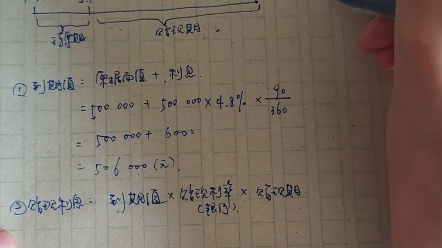 贴现期
① 到期值 = 票据面值 + 利息
= 500 000 + 500 000 × 4.8% × 90/360
= 500 000 + 6000
= 506 000 (元).
② 贴现利息 = 到期值 × 贴现利率 × 贴现期
(银行)